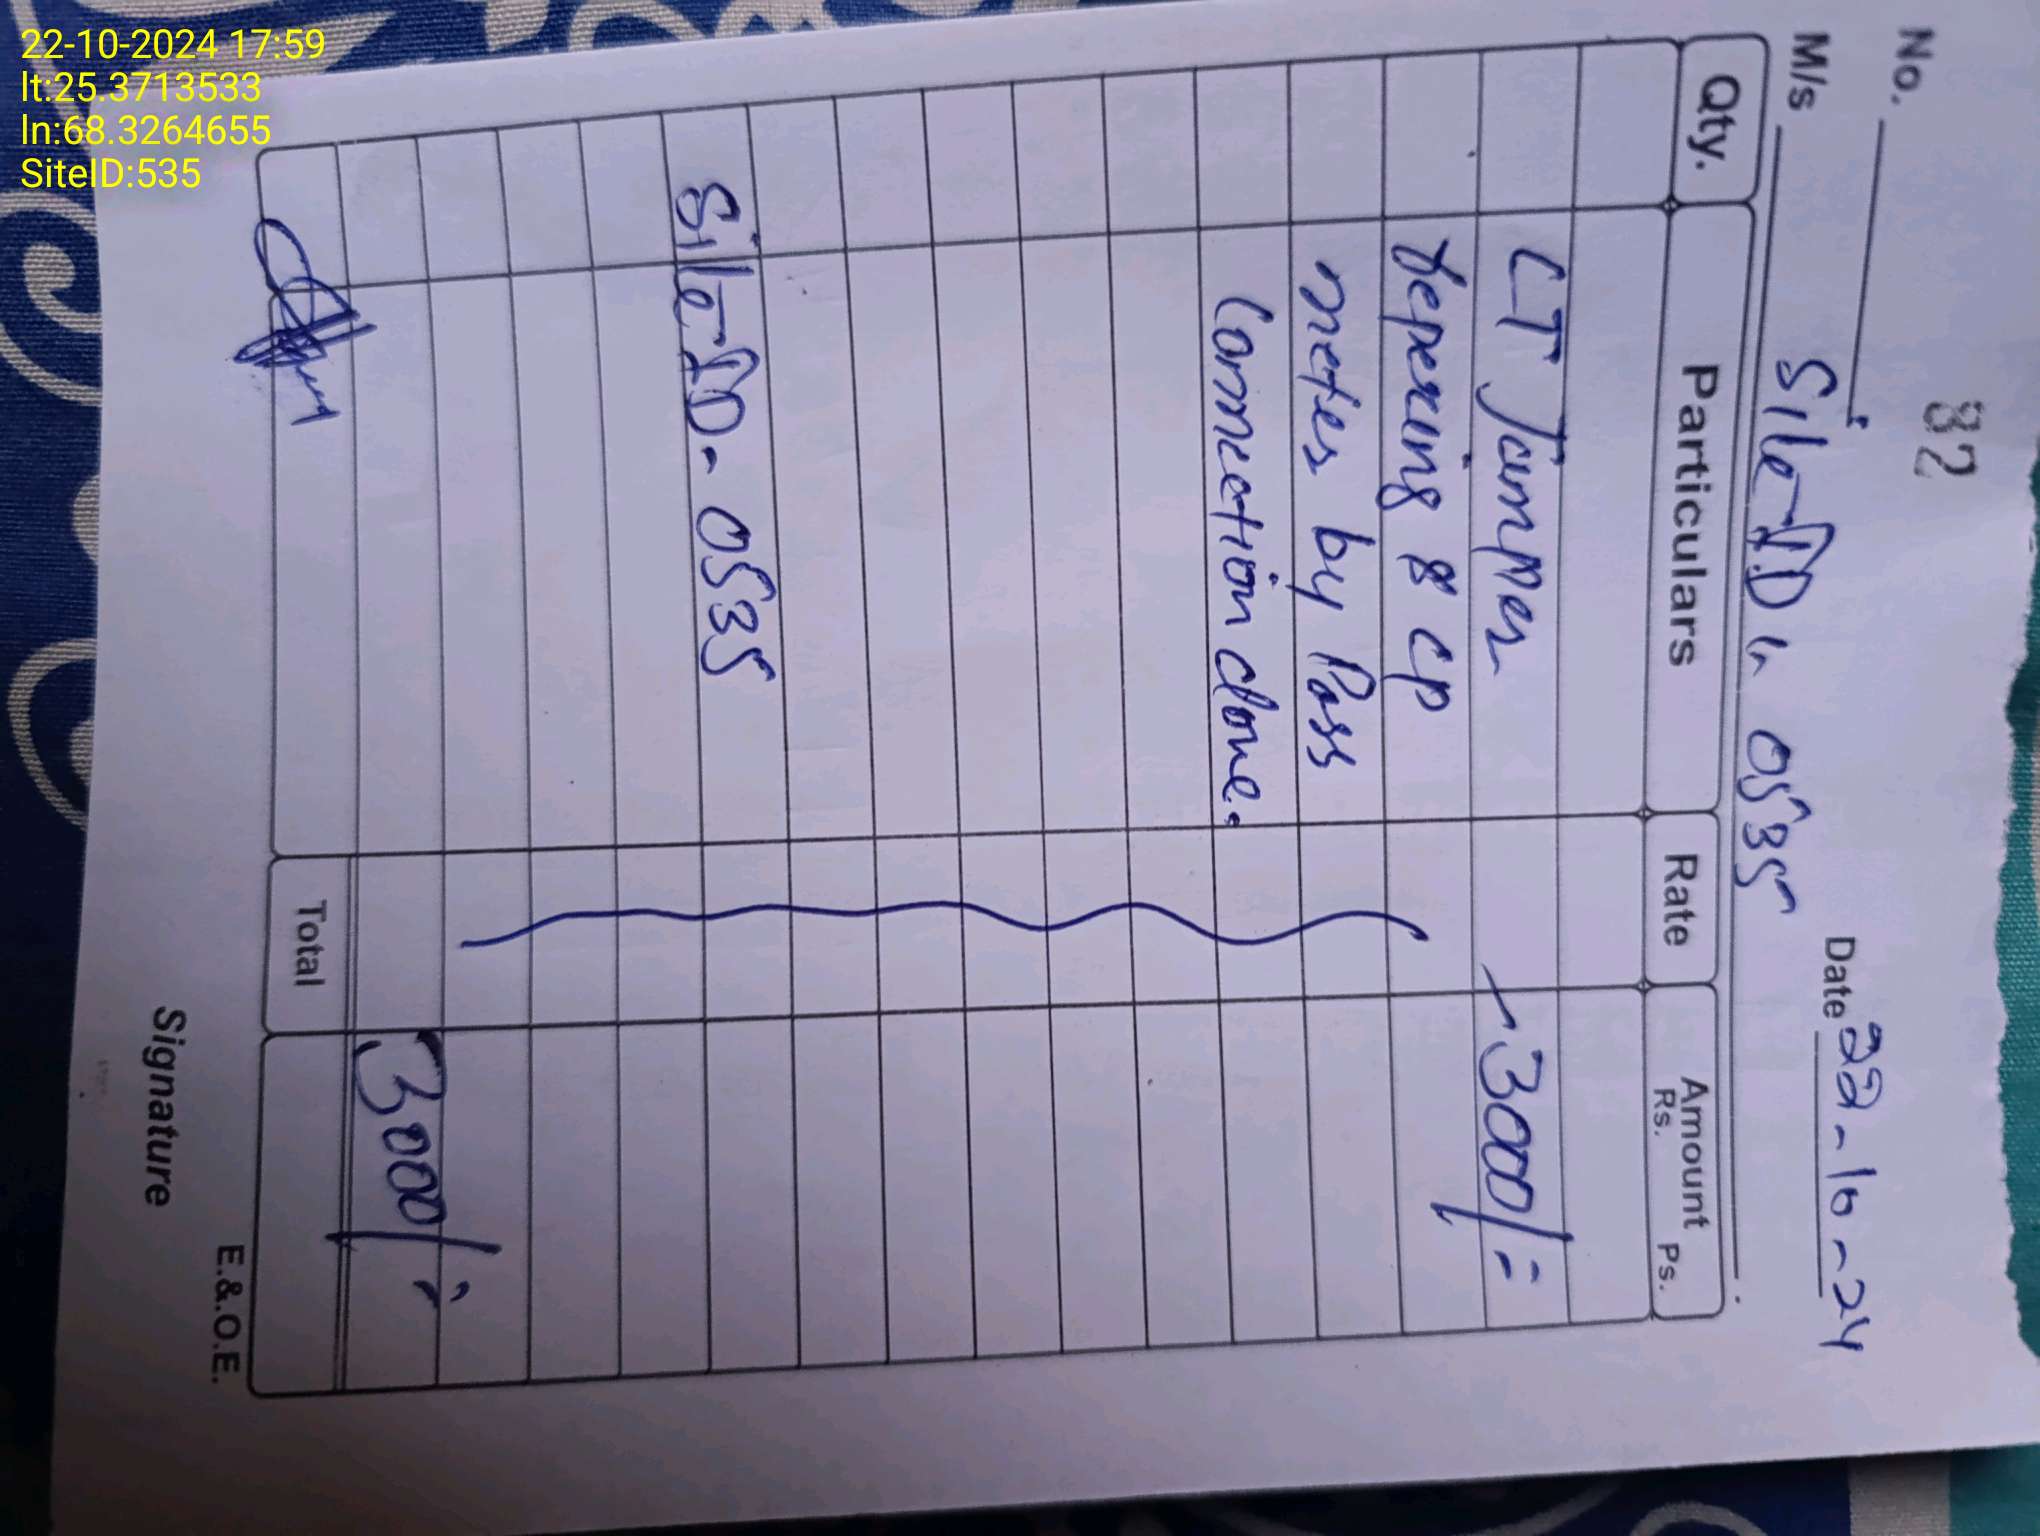 22-10-2024 17:59
lt:25.3713533
ln:68.3264655
SiteID:535
82
No.
Date 22-10-24
M/s Site ID 535
Qty. Particulars Rate Amount
Rs. Ps.
LT Jumper 3000/=
repering & CP
meter by Pass
Connection done.
Site ID - 0535
3000/=
Total
E.&.O.E.
Signature